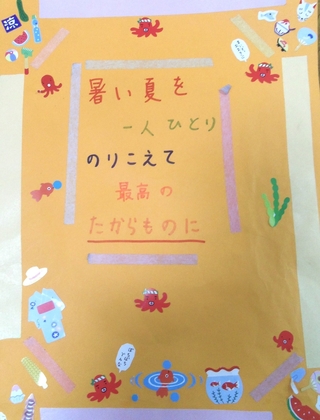 涼
暑い夏を
一人ひとり
のりこえて
最高の
たからものに